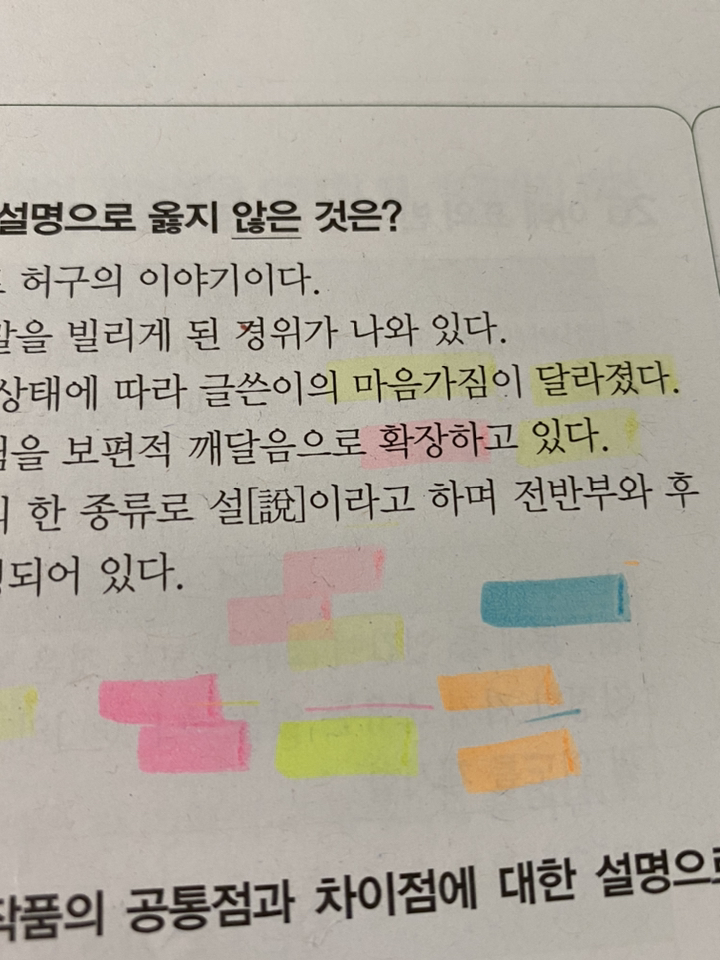 설명으로 옳지 않은 것은?
허구의 이야기이다.
말을 빌리게 된 경위가 나와 있다.
상태에 따라 글쓴이의 마음가짐이 달라졌다.
보편적 깨달음으로 확장하고 있다.
한 종류로 설[說]이라고 하며 전반부와 후
되어 있다.
작품의 공통점과 차이점에 대한 설명으로